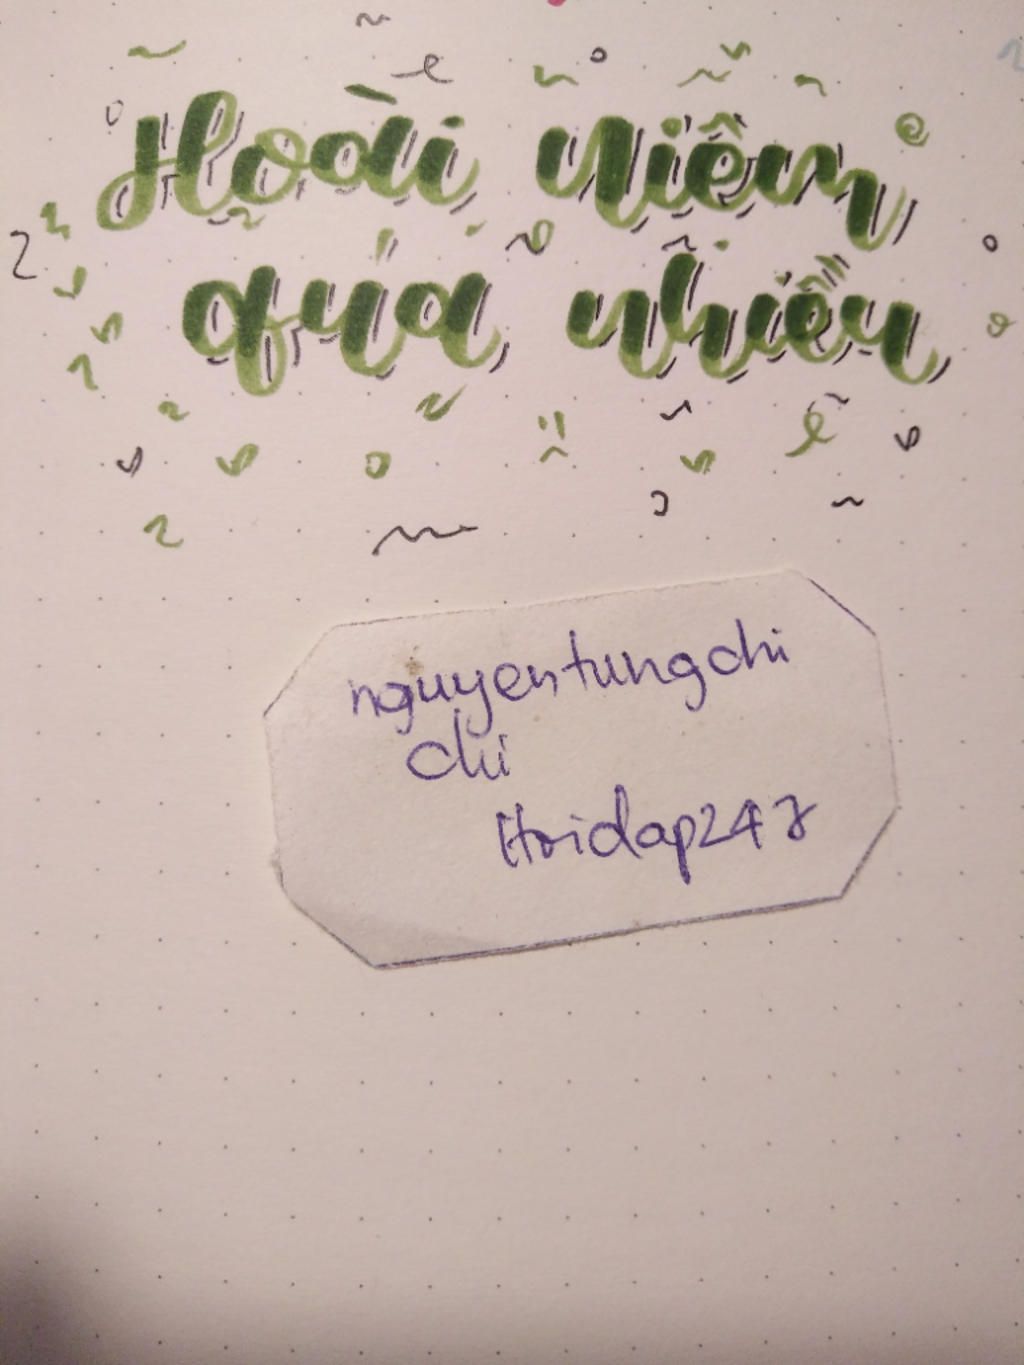 Hoài niệm
quá nhiều
nguyentungchi
chi
Hoidap247